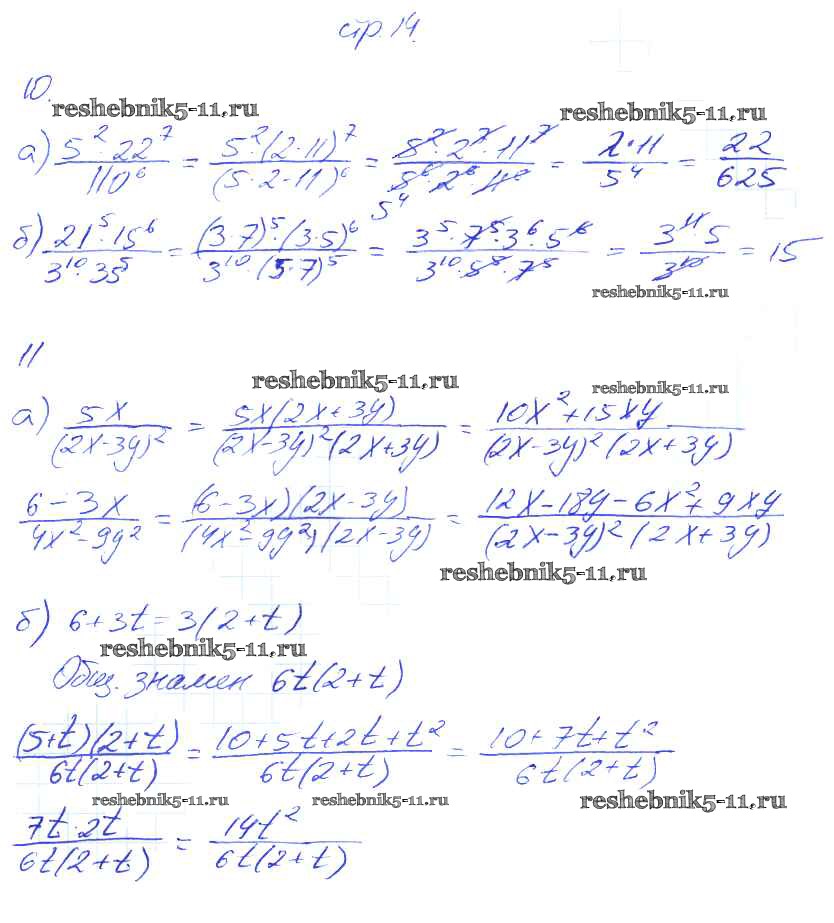 стр. 14.
10.
reshebnik5-11.ru reshebnik5-11.ru
а) 5²·22⁷/110⁶ = 5²·(2·11)⁷/(5·2·11)⁶ = 5²·2⁷·11⁷/5⁶·2⁶·11⁶ = 2·11/5⁴ = 22/625
5⁴
б) 21⁵·15⁶/3¹⁰·35⁵ = (3·7)⁵·(3·5)⁶/3¹⁰·(5·7)⁵ = 3⁵·7⁵·3⁶·5⁶/3¹⁰·5⁵·7⁵ = 3¹¹·5/3¹⁰ = 15
reshebnik5-11.ru
11
reshebnik5-11.ru reshebnik5-11.ru
а) 5x/(2x-3y)² = 5x(2x+3y)/(2x-3y)²(2x+3y) = 10x²+15xy/(2x-3y)²(2x+3y)
6-3x/4x²-9y² = (6-3x)(2x-3y)/(4x²-9y²)(2x-3y) = 12x-18y-6x²+9xy/(2x-3y)²(2x+3y)
reshebnik5-11.ru
б) 6+3t=3(2+t)
reshebnik5-11.ru
Общ. знамен 6t(2+t)
(5+t)(2+t)/6t(2+t) = 10+5t+2t+t²/6t(2+t) = 10+7t+t²/6t(2+t)
reshebnik5-11.ru reshebnik5-11.ru reshebnik5-11.ru
7t·2t/6t(2+t) = 14t²/6t(2+t)